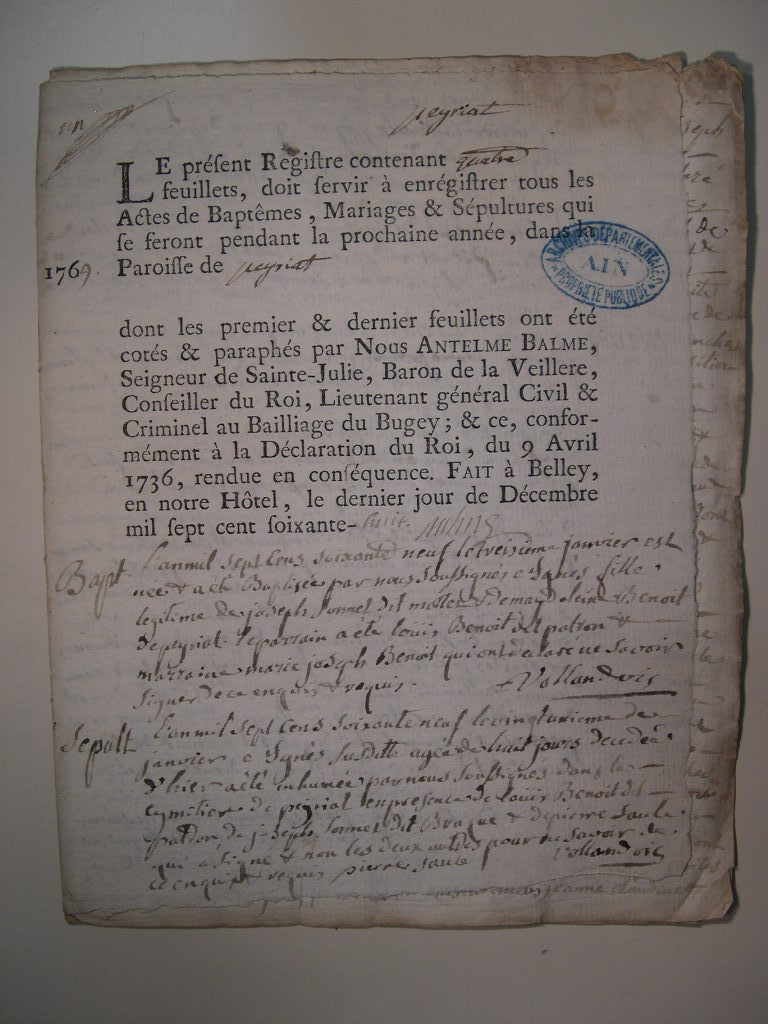 un
peyriat
LE présent Registre contenant quatre
feuillets, doit servir à enrégistrer tous les
Actes de Baptêmes, Mariages & Sépultures qui
se feront pendant la prochaine année, dans la
1769. Paroisse de peyriat
ARCHIVES DÉPARTEMENTALES
AIN
PROPRIÉTÉ PUBLIQUE
dont les premier & dernier feuillets ont été
cotés & paraphés par NOUS ANTELME BALME,
Seigneur de Sainte-Julie, Baron de la Veillere,
Conseiller du Roi, Lieutenant général Civil &
Criminel au Bailliage du Bugey; & ce, confor-
mément à la Déclaration du Roi, du 9 Avril
1736, rendue en conséquence. FAIT à Belley,
en notre Hôtel, le dernier jour de Décembre
mil sept cent soixante-huit.
Bapt. L'an mil sept cens soixante neuf le treisieme janvier est
née & a eté Baptisée par nous soussignés Agnès fille
legitime de joseph sonnet dit mottet & de magdeleine Benoit
de peyriat. le parrain a eté loüis Benoit dit patron &
marraine marie joseph Benoit qui ont declaré ne savoir
signer de ce enquis & requis. Vollandvis
Sepult L'an mil sept cens soixante neuf le vingt unieme de
janvier Agnès susditte agée de huit jours decedée
d'hier a eté inhumée par nous soussignés dans le
cymitiere de peyriat en presence de loüis Benoit dit
patron, de joseph sonnet dit & de pierre saule
qui a signé & non les deux autres pour ne savoir de
ce enquis & requis pierre saule Vollandvis